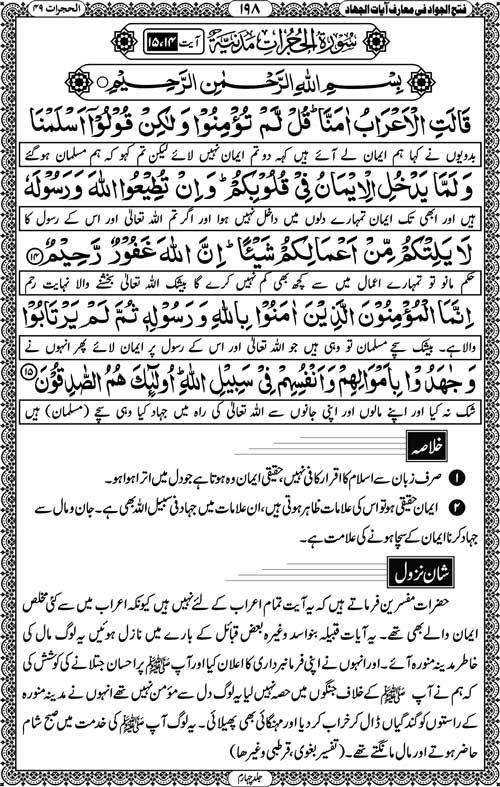 الحجرات ۴۹
۱۹۸
فتح الجواد فی معارف آیات الجہاد
سُوۡرَۃُ الۡحُجُرَاتِ مَدَنِیَّۃٌ آیت ۱۵،۱۴
بِسْمِ اللهِ الرَّحْمٰنِ الرَّحِيْمِ
قَالَتِ الْاَعْرَابُ اٰمَنَّا ؕ قُلْ لَّمْ تُؤْمِنُوْا وَلٰكِنْ قُوْلُوْۤا اَسْلَمْنَا
بدویوں نے کہا ہم ایمان لے آئے ہیں کہہ دو تم ایمان نہیں لائے لیکن تم کہو کہ ہم مسلمان ہوگئے
وَ لَمَّا يَدْخُلِ الْاِيْمَانُ فِيْ قُلُوْبِكُمْ ؕ وَ اِنْ تُطِيْعُوا اللهَ وَ رَسُوْلَهٗ
ہیں اور ابھی تک ایمان تمہارے دلوں میں داخل نہیں ہوا اور اگر تم اللہ تعالیٰ اور اس کے رسول کا
لَا يَلِتْكُمْ مِّنْ اَعْمَالِكُمْ شَيْـًٔا ؕ اِنَّ اللهَ غَفُوْرٌ رَّحِيْمٌ ۝۱۴
حکم مانو تو تمہارے اعمال میں سے کچھ بھی کم نہیں کرے گا بیشک اللہ تعالیٰ بخشنے والا نہایت رحم
اِنَّمَا الْمُؤْمِنُوْنَ الَّذِيْنَ اٰمَنُوْا بِاللهِ وَ رَسُوْلِهٖ ثُمَّ لَمْ يَرْتَابُوْا
والا ہے۔ بیشک سچے مسلمان تو وہی ہیں جو اللہ تعالیٰ اور اس کے رسول پر ایمان لائے پھر انہوں نے
وَ جٰهَدُوْا بِاَمْوَالِهِمْ وَ اَنْفُسِهِمْ فِيْ سَبِيْلِ اللهِ ؕ اُولٰٓئِكَ هُمُ الصّٰدِقُوْنَ ۝۱۵
شک نہ کیا اور اپنے مالوں اور اپنی جانوں سے اللہ تعالیٰ کی راہ میں جہاد کیا وہی سچے (مسلمان) ہیں
خلاصہ
۱ صرف زبان سے اسلام کا اقرار کافی نہیں، حقیقی ایمان وہ ہوتا ہے جو دل میں اترا ہوا ہو۔
۲ ایمان حقیقی ہو تو اس کی علامات ظاہر ہوتی ہیں، ان علامات میں جہاد فی سبیل اللہ بھی ہے۔ جان و مال سے
جہاد کرنا ایمان کے سچا ہونے کی علامت ہے۔
شان نزول
حضرات مفسرین فرماتے ہیں کہ یہ آیت تمام اعراب کے لئے نہیں ہیں کیونکہ اعراب میں سے کئی مخلص
ایمان والے بھی تھے۔ یہ آیات قبیلہ بنو اسد وغیرہ بعض قبائل کے بارے میں نازل ہوئیں یہ لوگ مال کی
خاطر مدینہ منورہ آئے۔ اور انہوں نے اپنی فرمانبرداری کا اعلان کیا اور آپ ﷺ پر احسان جتلانے کی کوشش کی
کہ ہم نے آپ ﷺ کے خلاف جنگوں میں حصہ نہیں لیا یہ لوگ دل سے مؤمن نہیں تھے انہوں نے مدینہ منورہ
کے راستوں کو گندگیاں ڈال کر خراب کر دیا اور مہنگائی بھی پھیلائی۔ یہ لوگ آپ ﷺ کی خدمت میں صبح شام
حاضر ہوتے اور مال مانگتے تھے۔ (تفسیر بغوی، قرطبی وغیرھا)
جلد چہارم